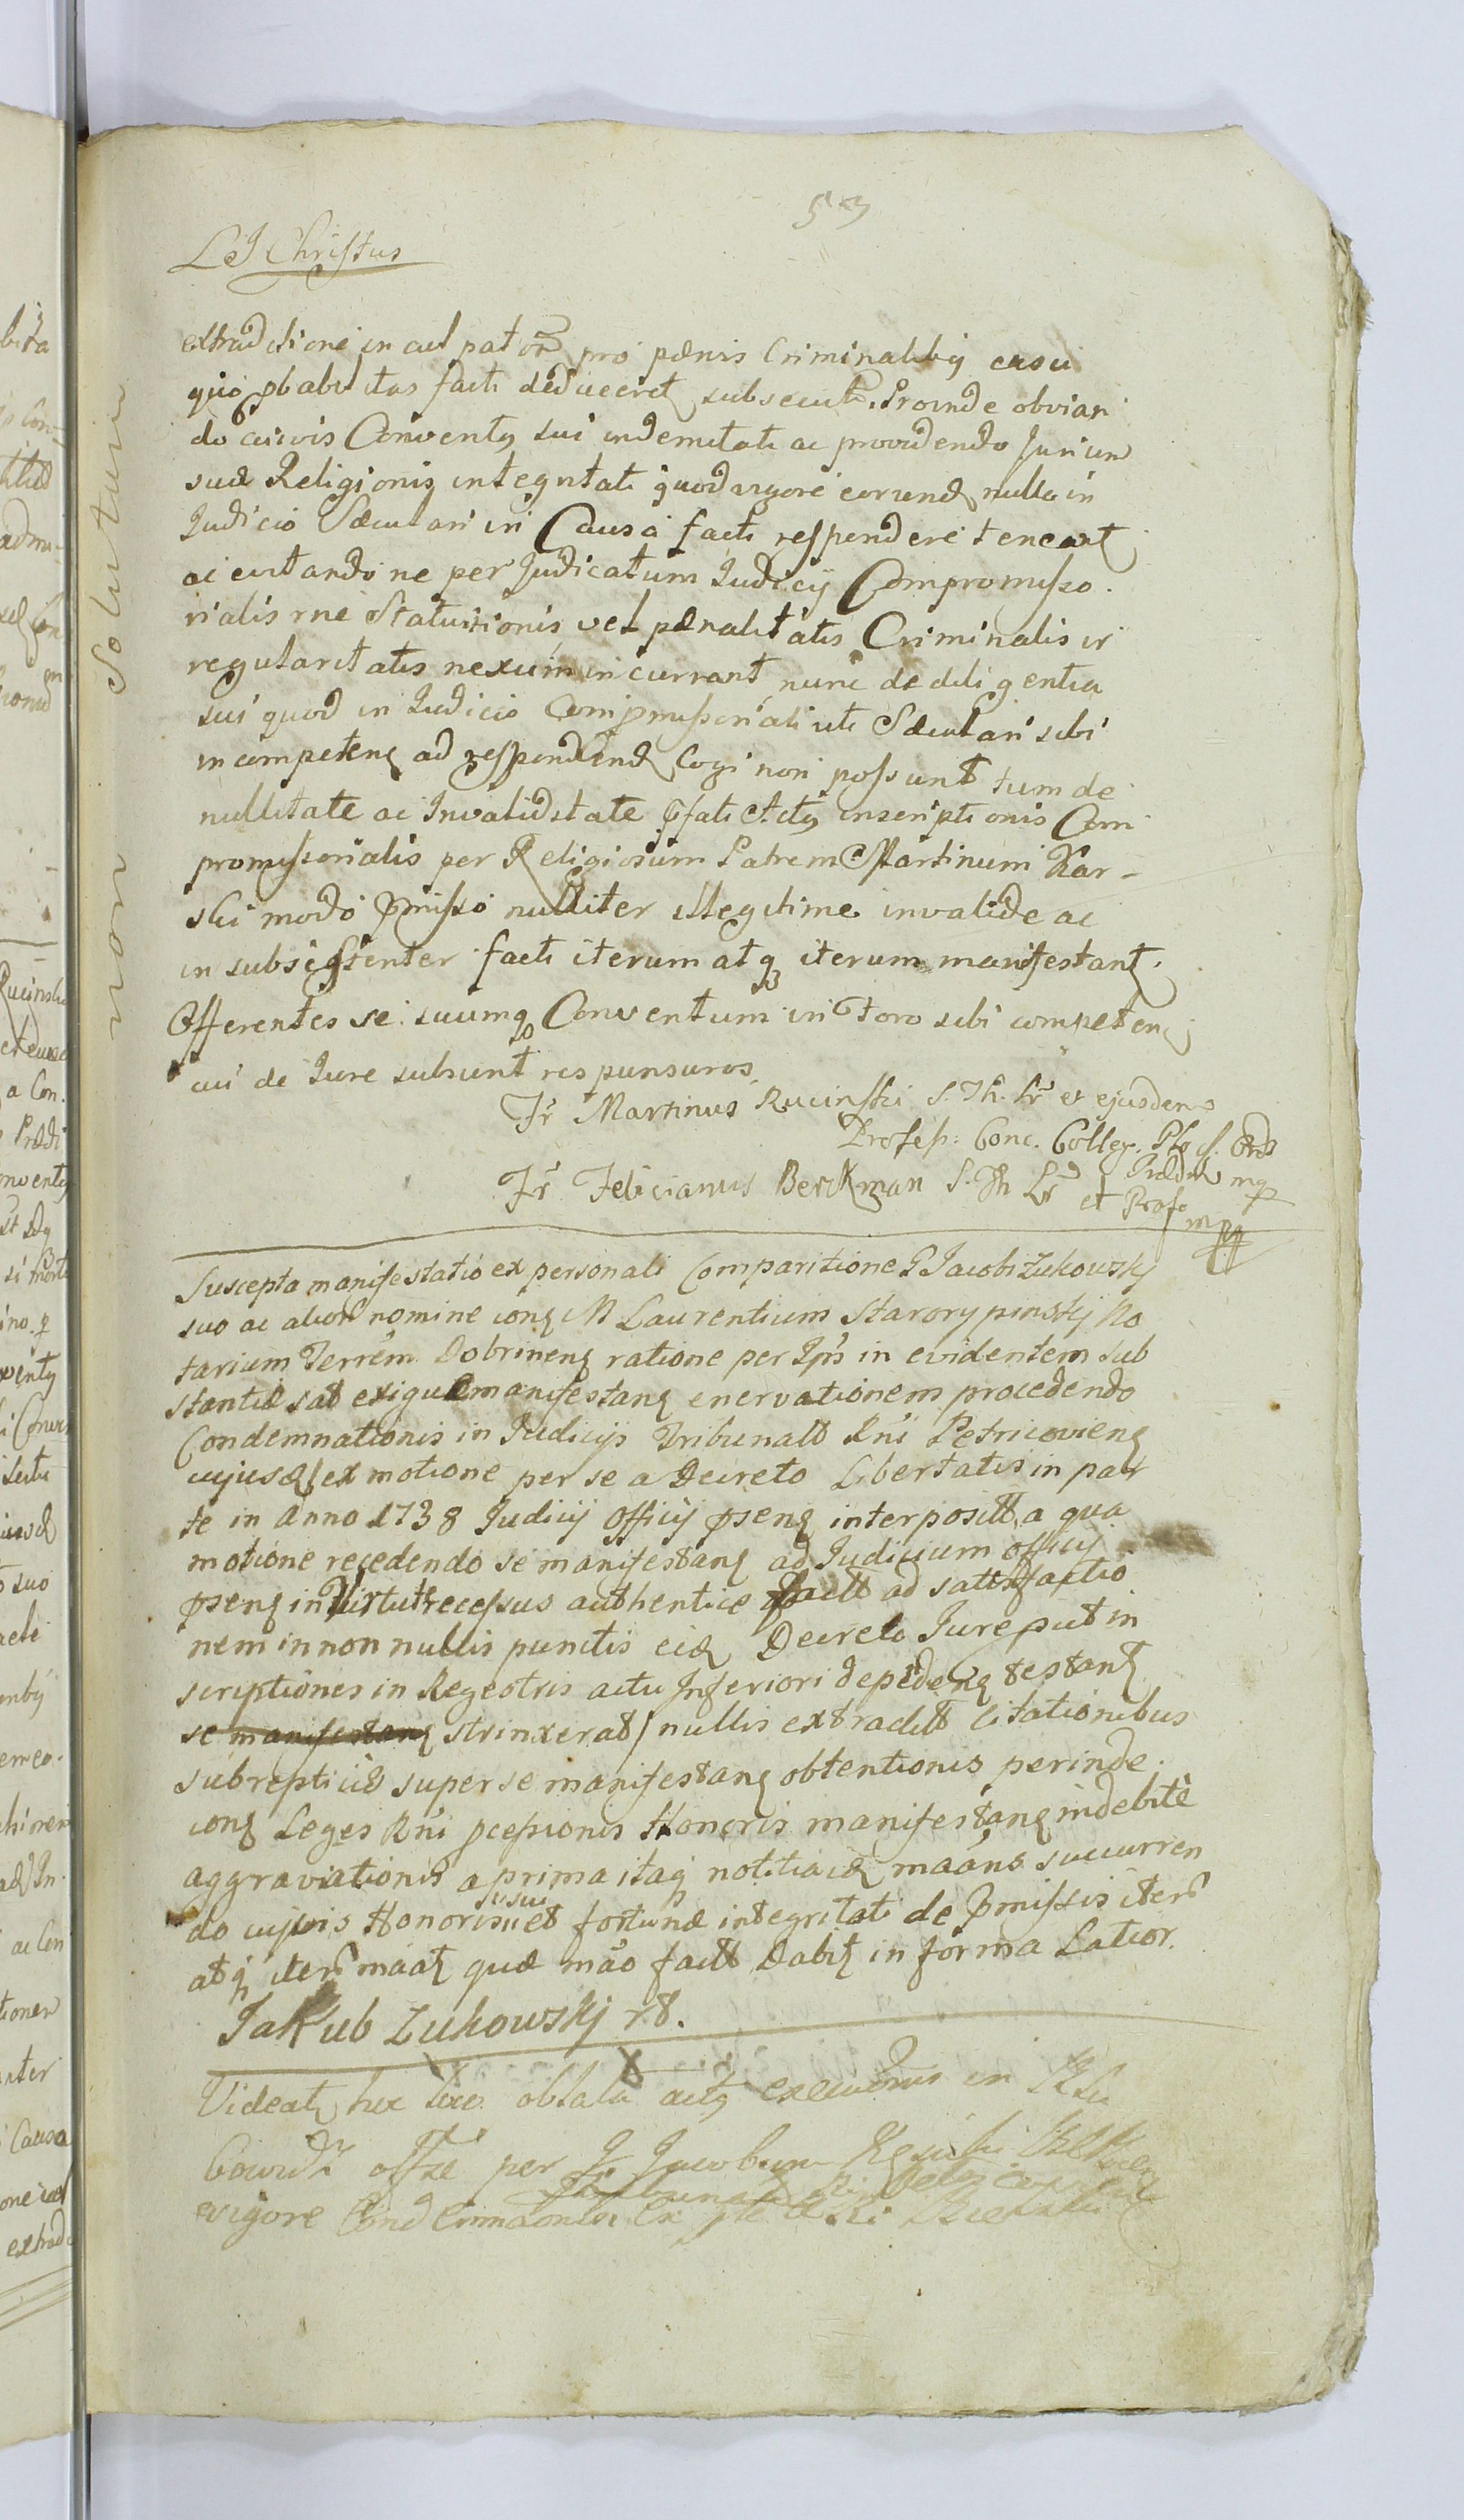 53
LJChristus
extraditione inculpator pro pænis Criminalibq casu
quo pbabilitas facti deduceret subsecuti. Proinde obvian
do cuivis Conventq sui indemitati ac providendo Jurium
suæ Religionis integritati quod vigore eorund nullo in
Judicio Sæculari in Causa facti respondere teneant
ac evitando ne per Judicatum Judicij Compromisso.
rialis rne Statuitionis vel pænalitatis Criminalis ir
regularitatis nexum incurrant nunc de diligentia
sui quod in Judicio Compmissoriali uti Sæculari sibi
incompeten ad respondend Cogi non possunt tum de
nullitate ac Invaliditate pfati Actq inscriptionis Com
promissorialis per Religiosum Patrem Martinum Kar-
ski modo pmisso nulliter illegitime invalide ac
insubsistenter facti iterum atq iterum manifestant.
Offerentes se suumq Conventum in Foro sibi competen
cui de Jure subsunt responsuros
Fr Martinus Rucinski S. Th. Lr et ejusdem
Profess: Conc. Colleg. Plo S. Ord
Prædic mp
Fr Felicianus Berckman S. Th Lr et Profe
mpp
Suscepta manifestatio ex personali Comparitione G Jacobi Zukowskj
suo ac alior nomine con M Laurentium Starorypinskij No
tarium Terrem Dobrinen ratione per Ipm in evidentem sub
stantiæ sat exiguæ manifestan enervationem procedendo
Condemnationis in Judicijs Tribunalt Rni Petricovien
cujusd ex motione per se a Decreto Libertatis in par
te in Anno 1738 Judicij Officij psen interposit a qua
motione recedendo se manifestan ad Judicium officij
psen in Virtut recessus authentice fact ad satisfactio
nem in non nullis punctis eid Decreto Jure put in
scriptiones in Regestris actu Inferiori depeden testant
se manifestan strinxerat nullis extradit Citationibus
subrepticie super se manifestan obtentionis perinde.
con Leges Rni pcessionis Honoris manifestan indebitè
aggraviationis a prima itaq notitia maans succurren
do cujvis Honoris sui et fortunæ integritati de pmissis iter
atq iter maat quæ mao fact Dabit in forma Latior.
JaKub Zukowskj
Videat hic obtata actq in
per Jacobum
vigore Condemnaonis
non Solutum